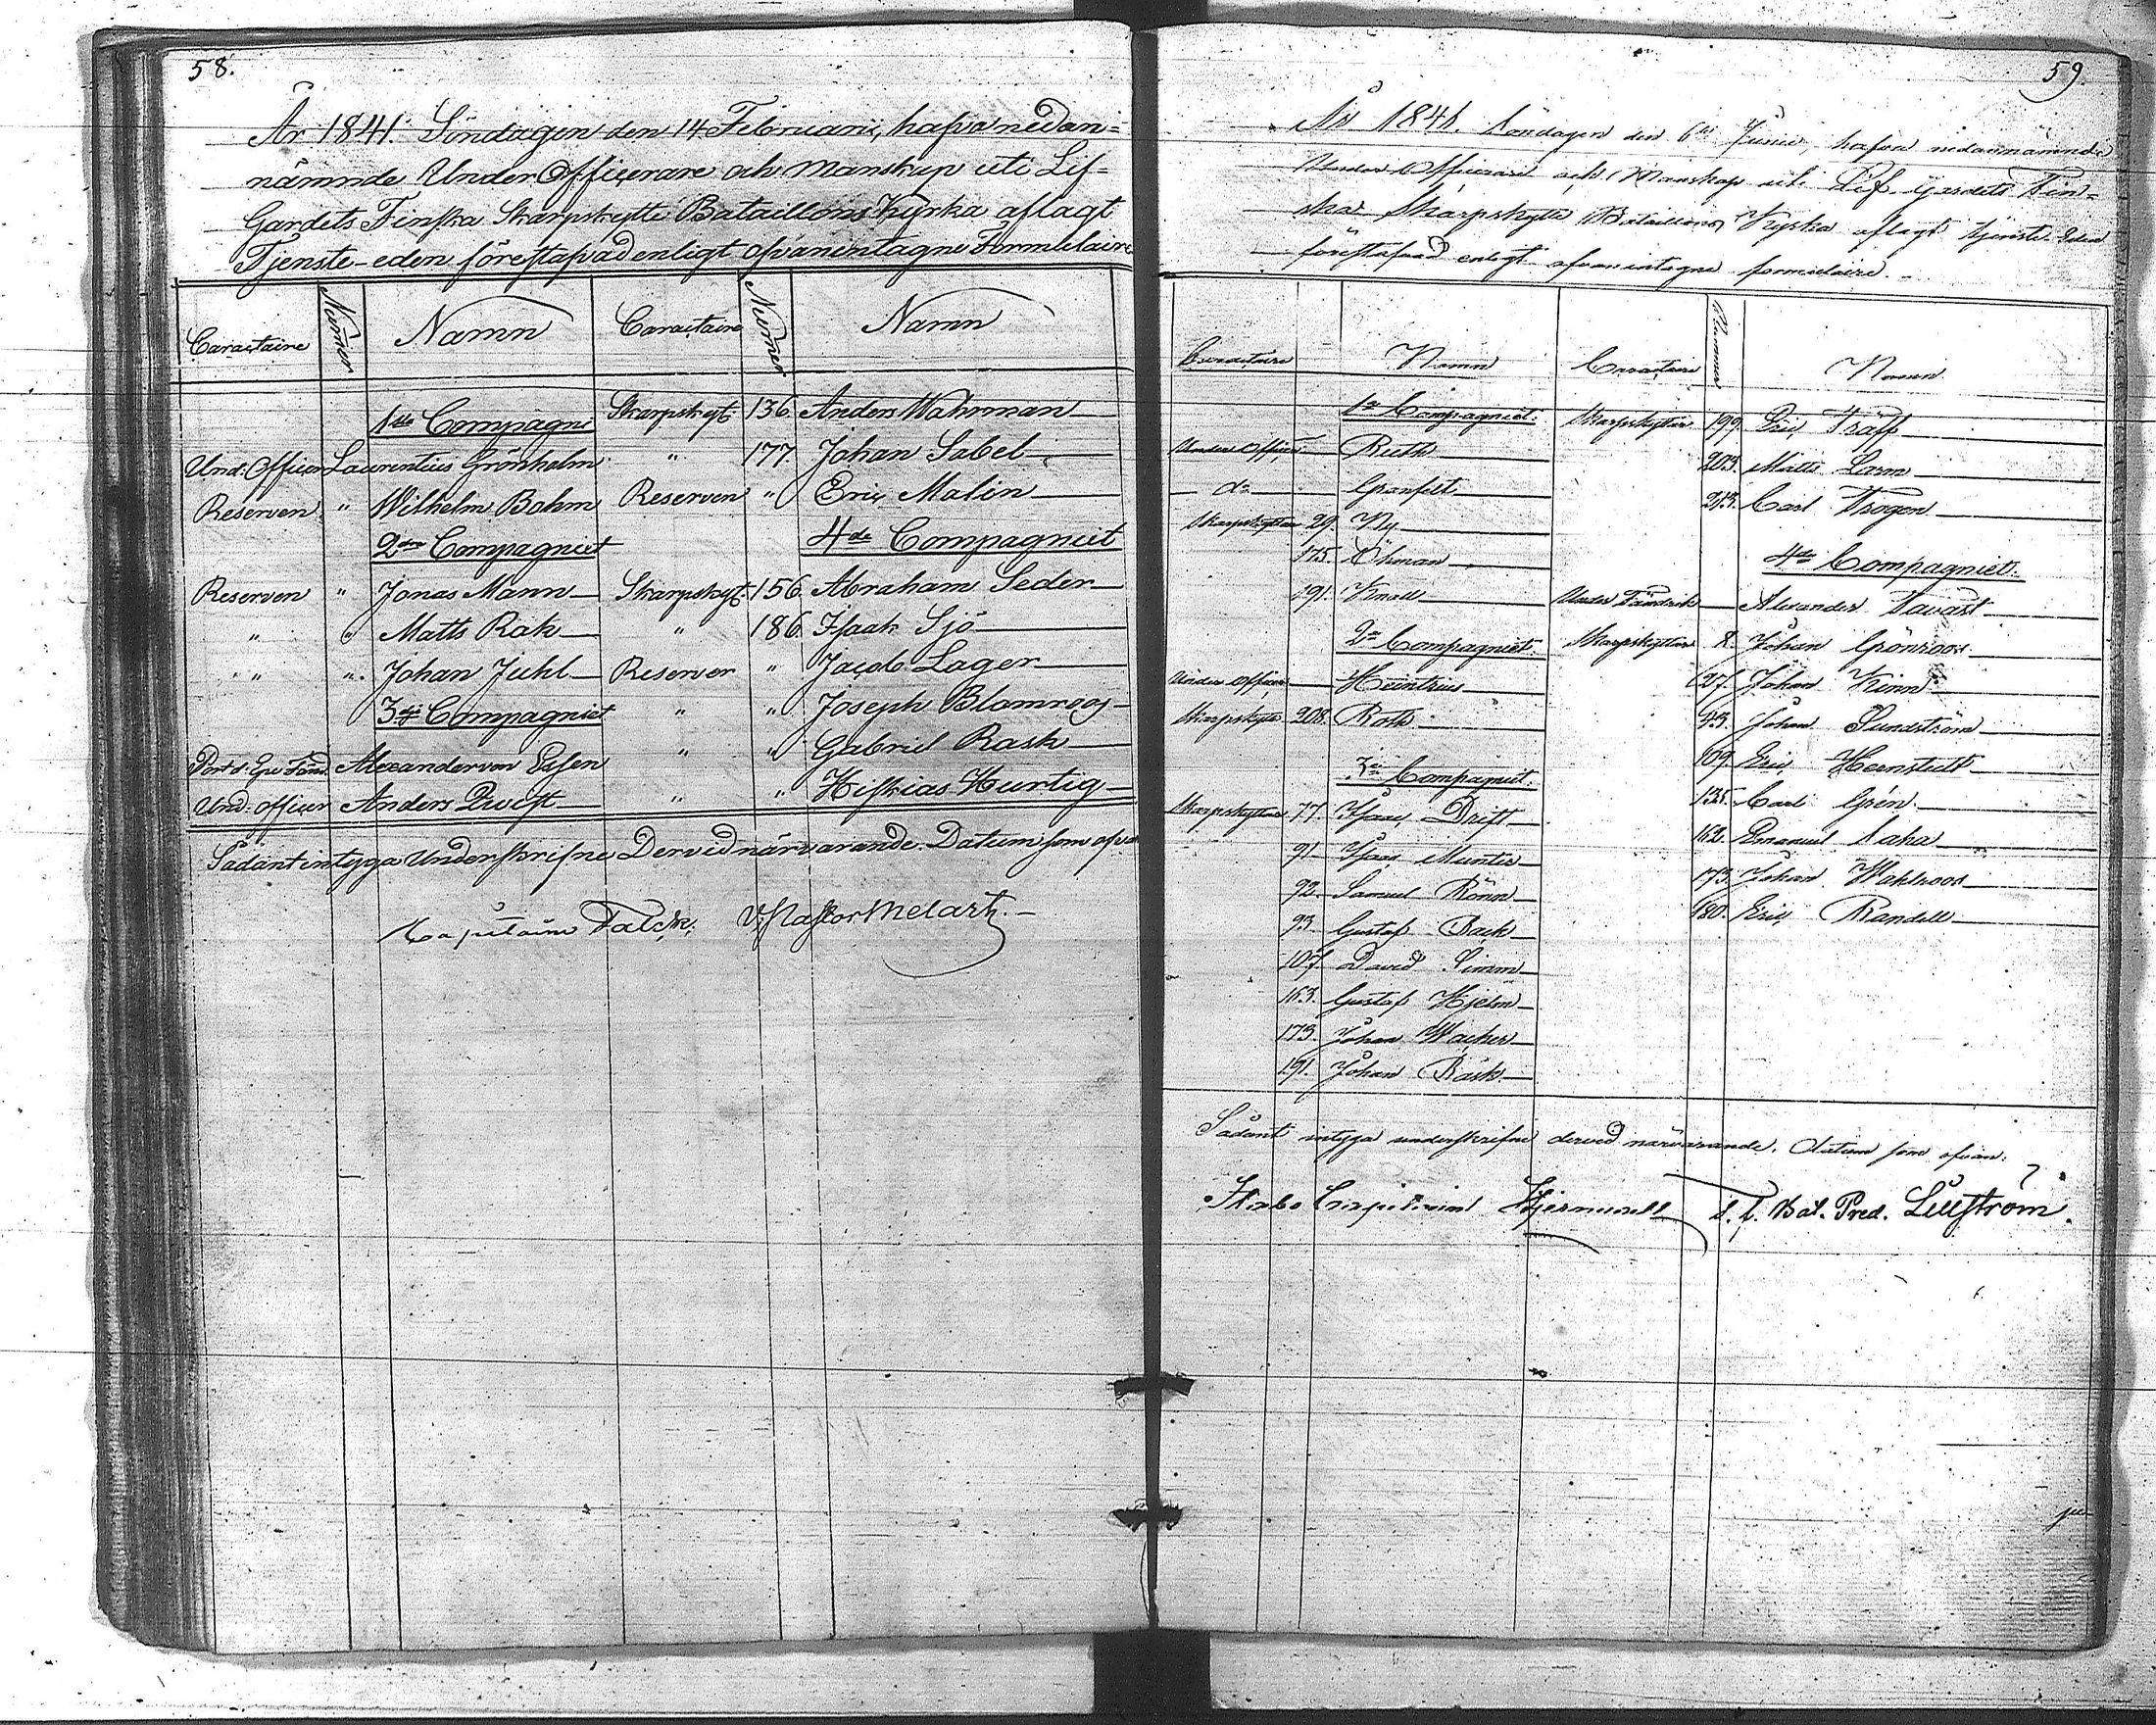 58.
År 1841. Söndagen den 14 Februarii, hafva nedan=
nämnde Under Officerare och Manskap uti Lif=
Gardets Finska Skarpskytte Bataillons Kyrka aflagt
Tjenste-eden förestafvad enligt ofvanintagne Formulaire
Caractaire Numer Namn Caractaire Numer Namn
1sta Compagni Skarpskyt: 136. Anders Wahrman
Und: Officer Laurentius Grönholm " 177 Johan Sabel
Reserven " Wilhelm Bohm Reserven " Eric Malin
2dra Compagniet 4de Compagniet
Reserven " Jonas Mann Skarpskyt: 156. Abraham Seder
" " Matts Rak " 186. Isaak Sjö
" " Johan Juhl Reserver " Jacob Lager
3dje Compagniet " " Joseph Blomroos
" " Gabriel Rask
Port d: Epé Fänd: Alexander von Essen
Und: officer Anders Qwist " " Hiskias Hurtig
Sådant intyga Underskrifne Dervid närvarande. Datum som ofvan
Capitaine Falck. V. Pastor Melartz.
59.
År 1841. Söndagen den 6te Junii, hafva nedannämnde
Under Officerare och Manskap uti Lif-Gardets Fin=
ska Skarpskytte Bataillons Kyrka aflagt tjenste-Eden
förestafvad enligt ofvanintagne formulaire.
Caractaire Namn Caractaire Nummer Namn
1a Compagniet. Skarpskytter 199. Eric Träff
Under Officer Ruth 203. Matts Larm
do Granfelt 213. Carl Trogen
Skarpskytter 29. Ny
175. Öhman 4de Compagniet.
191. Knall Under Fändrik Alexander Tavast
2a Compagniet. Skarpskytter 8. Johan Grönroos
Under Officer Heintzius 27. Johan Kinn
Skarpskytt 208. Roth 43. Johan Sundström
3e Compagniet. 109. Eric Hernstedt
Skarpskytter 77. Isaac Drift 135. Carl Grén
91. Isaac Munter 162. Emanuel Saha
92. Samuel Rönn 173. Johan Wahlroos
93. Gustaf Back 180. Eric Randell
107. David Simm
163. Gustaf Hjelm
173. Johan Wacker
191. Johan Rask
Sådant intyga underskrifne dervid närvarande. Datum som ofvan.
Stabs Capitaine t. f. Bat. Pred. Lilljström.